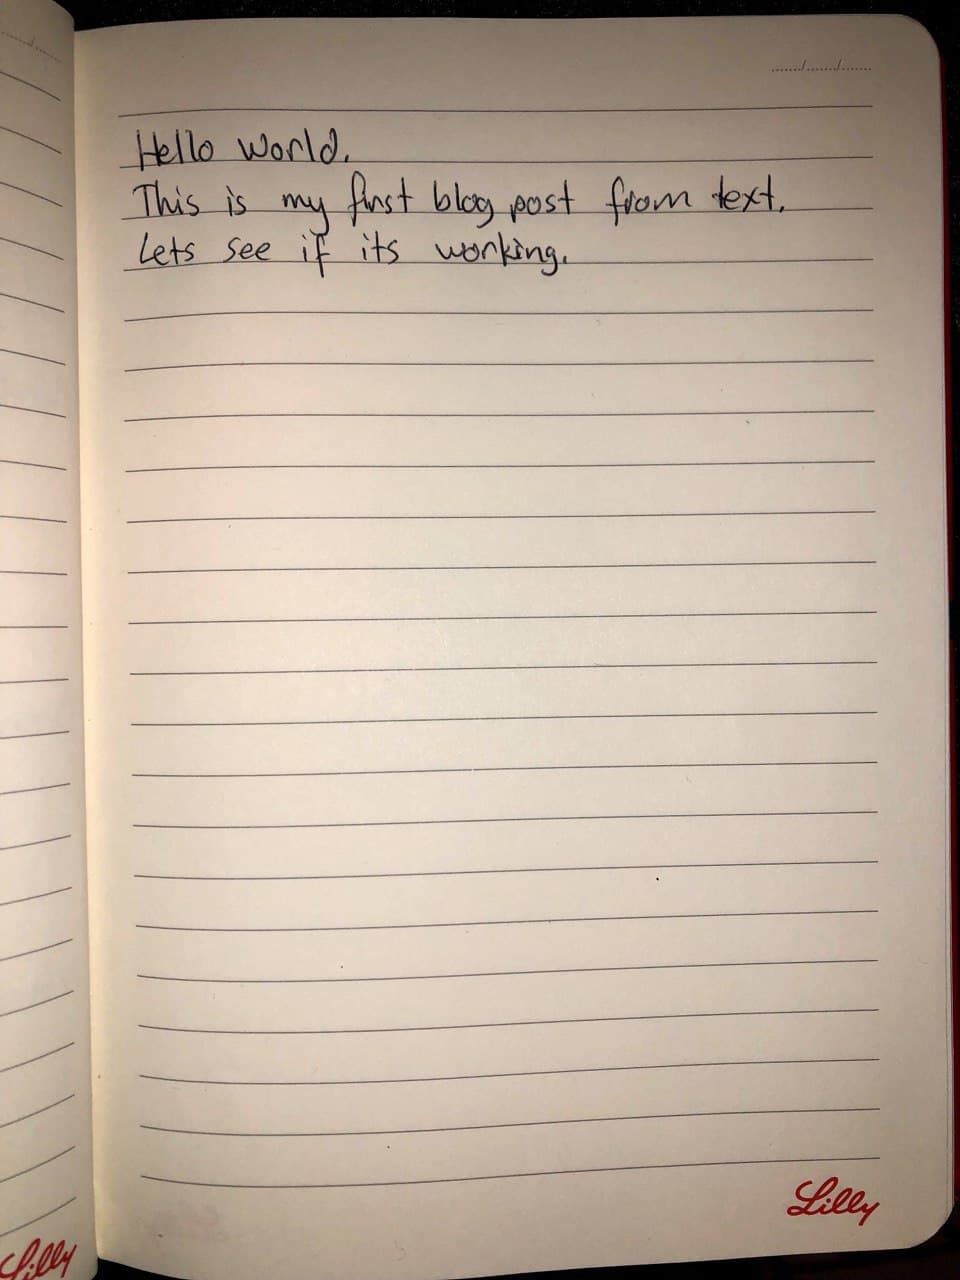 ....../....../......
Hello world.
This is my first blog post from text.
Lets see if its working.
Lilly
Lilly